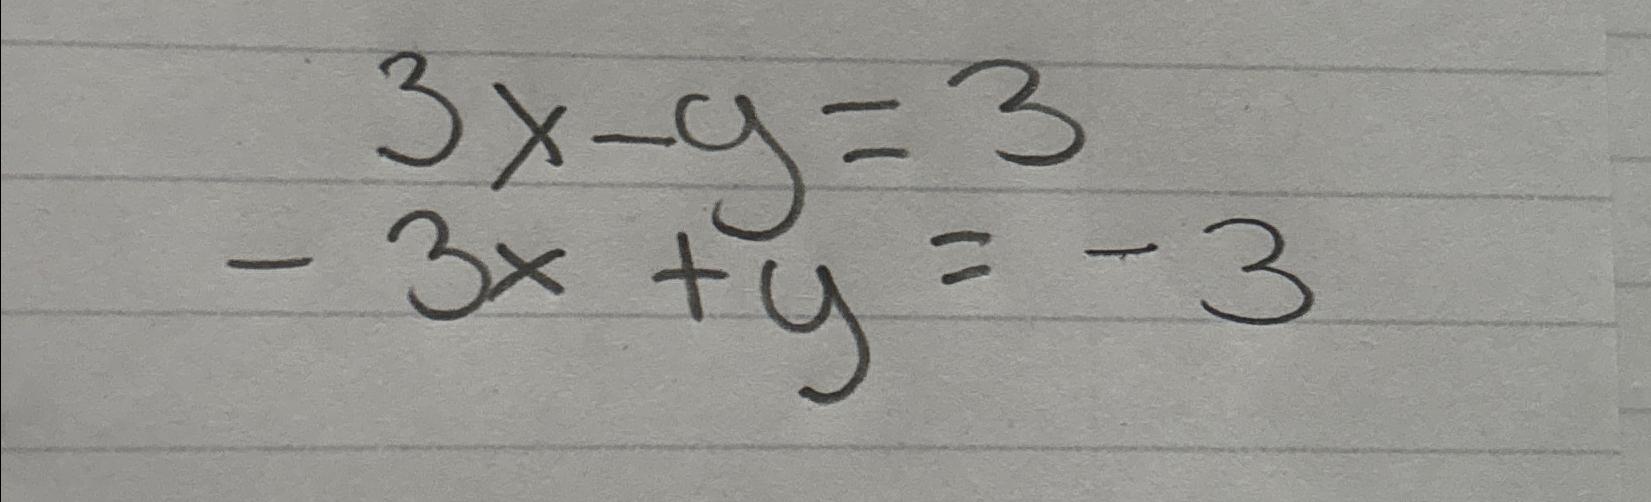 3x-y=3
-3x+y=-3